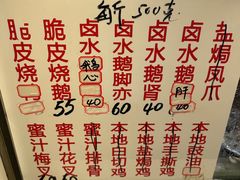 斤 500克
脆皮烧
脆皮烧鹅 55
卤水鹅 心 40
卤水鹅脚亦 60
卤水鹅肾 40
卤水鹅 肝 40
盐焗凤爪
蜜汁梅叉
蜜汁花叉
蜜汁排骨
本地白切鸡
本地盐焗鸡
本地手撕鸡
本地豉油